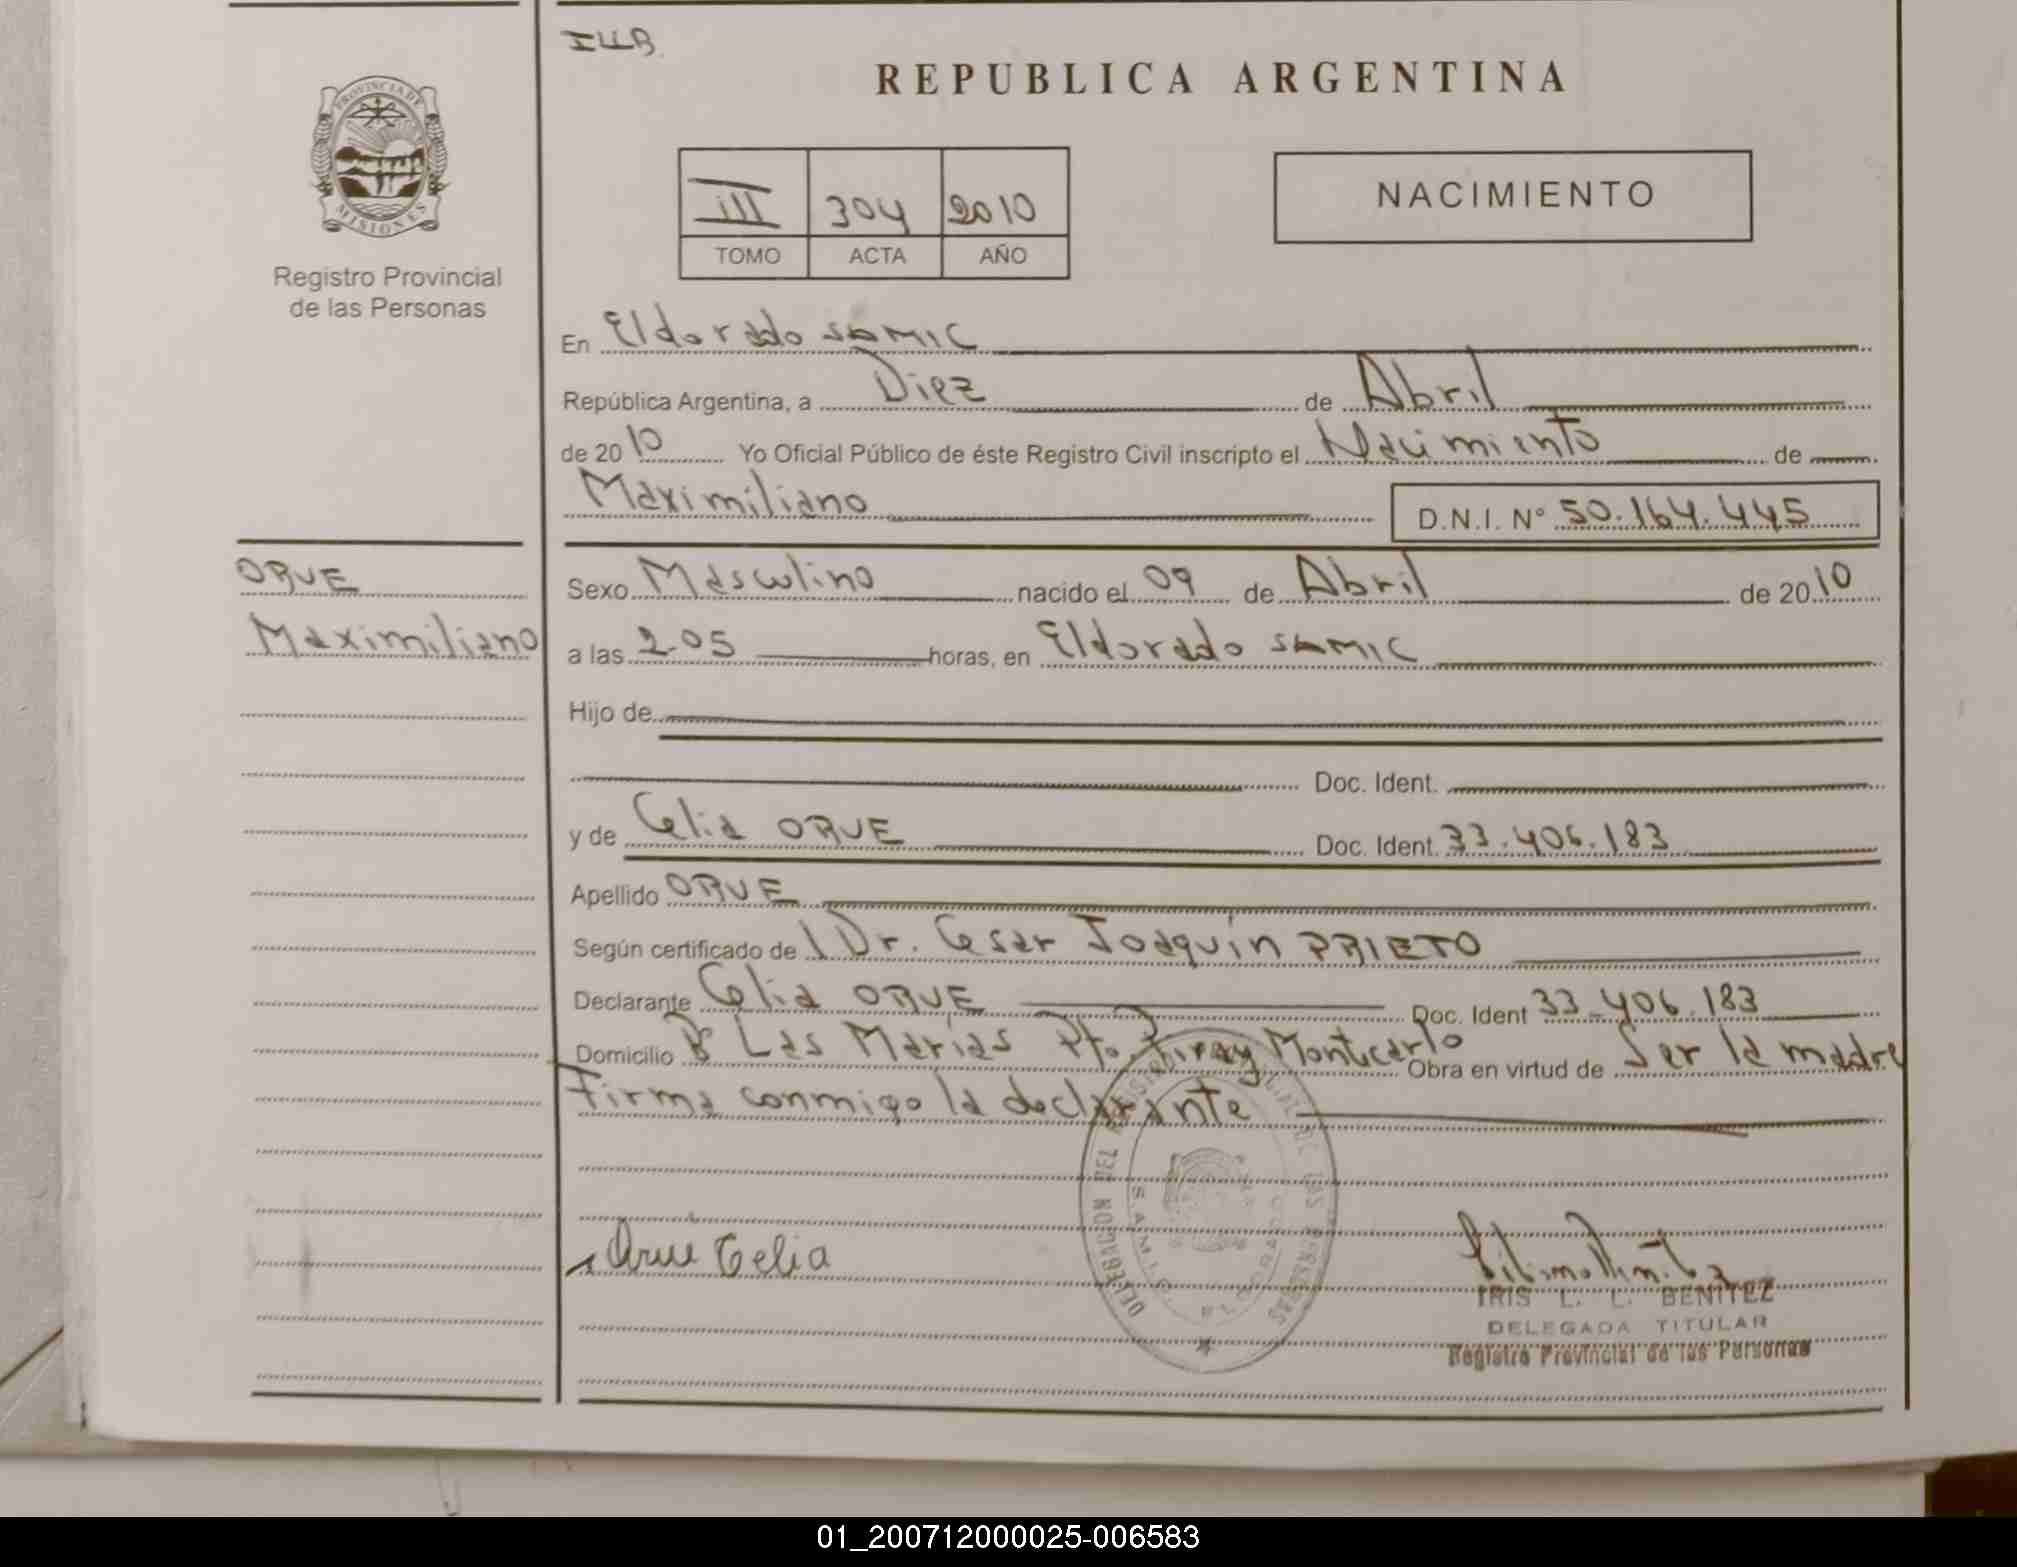 ILLB
REPUBLICA ARGENTINA
PROVINCIA DE
MISIONES
Registro Provincial
de las Personas
III 304 2010
TOMO ACTA AÑO
NACIMIENTO
En Eldorado SAMIC
República Argentina, a Diez de Abril
de 2010 Yo Oficial Público de éste Registro Civil inscripto el Nacimiento de
Maximiliano D.N.I. Nº 50.164.445
ORUE
Maximiliano
Sexo Masculino nacido el 09 de Abril de 2010
a las 2.05 horas, en Eldorado SAMIC
Hijo de
Doc. Ident.
y de Celia ORUE Doc. Ident. 33.406.183
Apellido ORUE
Según certificado de Dr. Cesar Joaquín PRIETO
Declarante Celia ORUE Doc. Ident 33.406.183
Domicilio Bº Las Marías Pto. Piray Montecarlo Obra en virtud de Ser la madre
Firma conmigo la declarante
DELEGACION DEL REGISTRO PROVINCIAL DE LAS PERSONAS
S.A.M.I.C. ELDORADO
Orue Celia
IRIS L. L. BENITEZ
DELEGADA TITULAR
Registro Provincial de las Personas
01_200712000025-006583